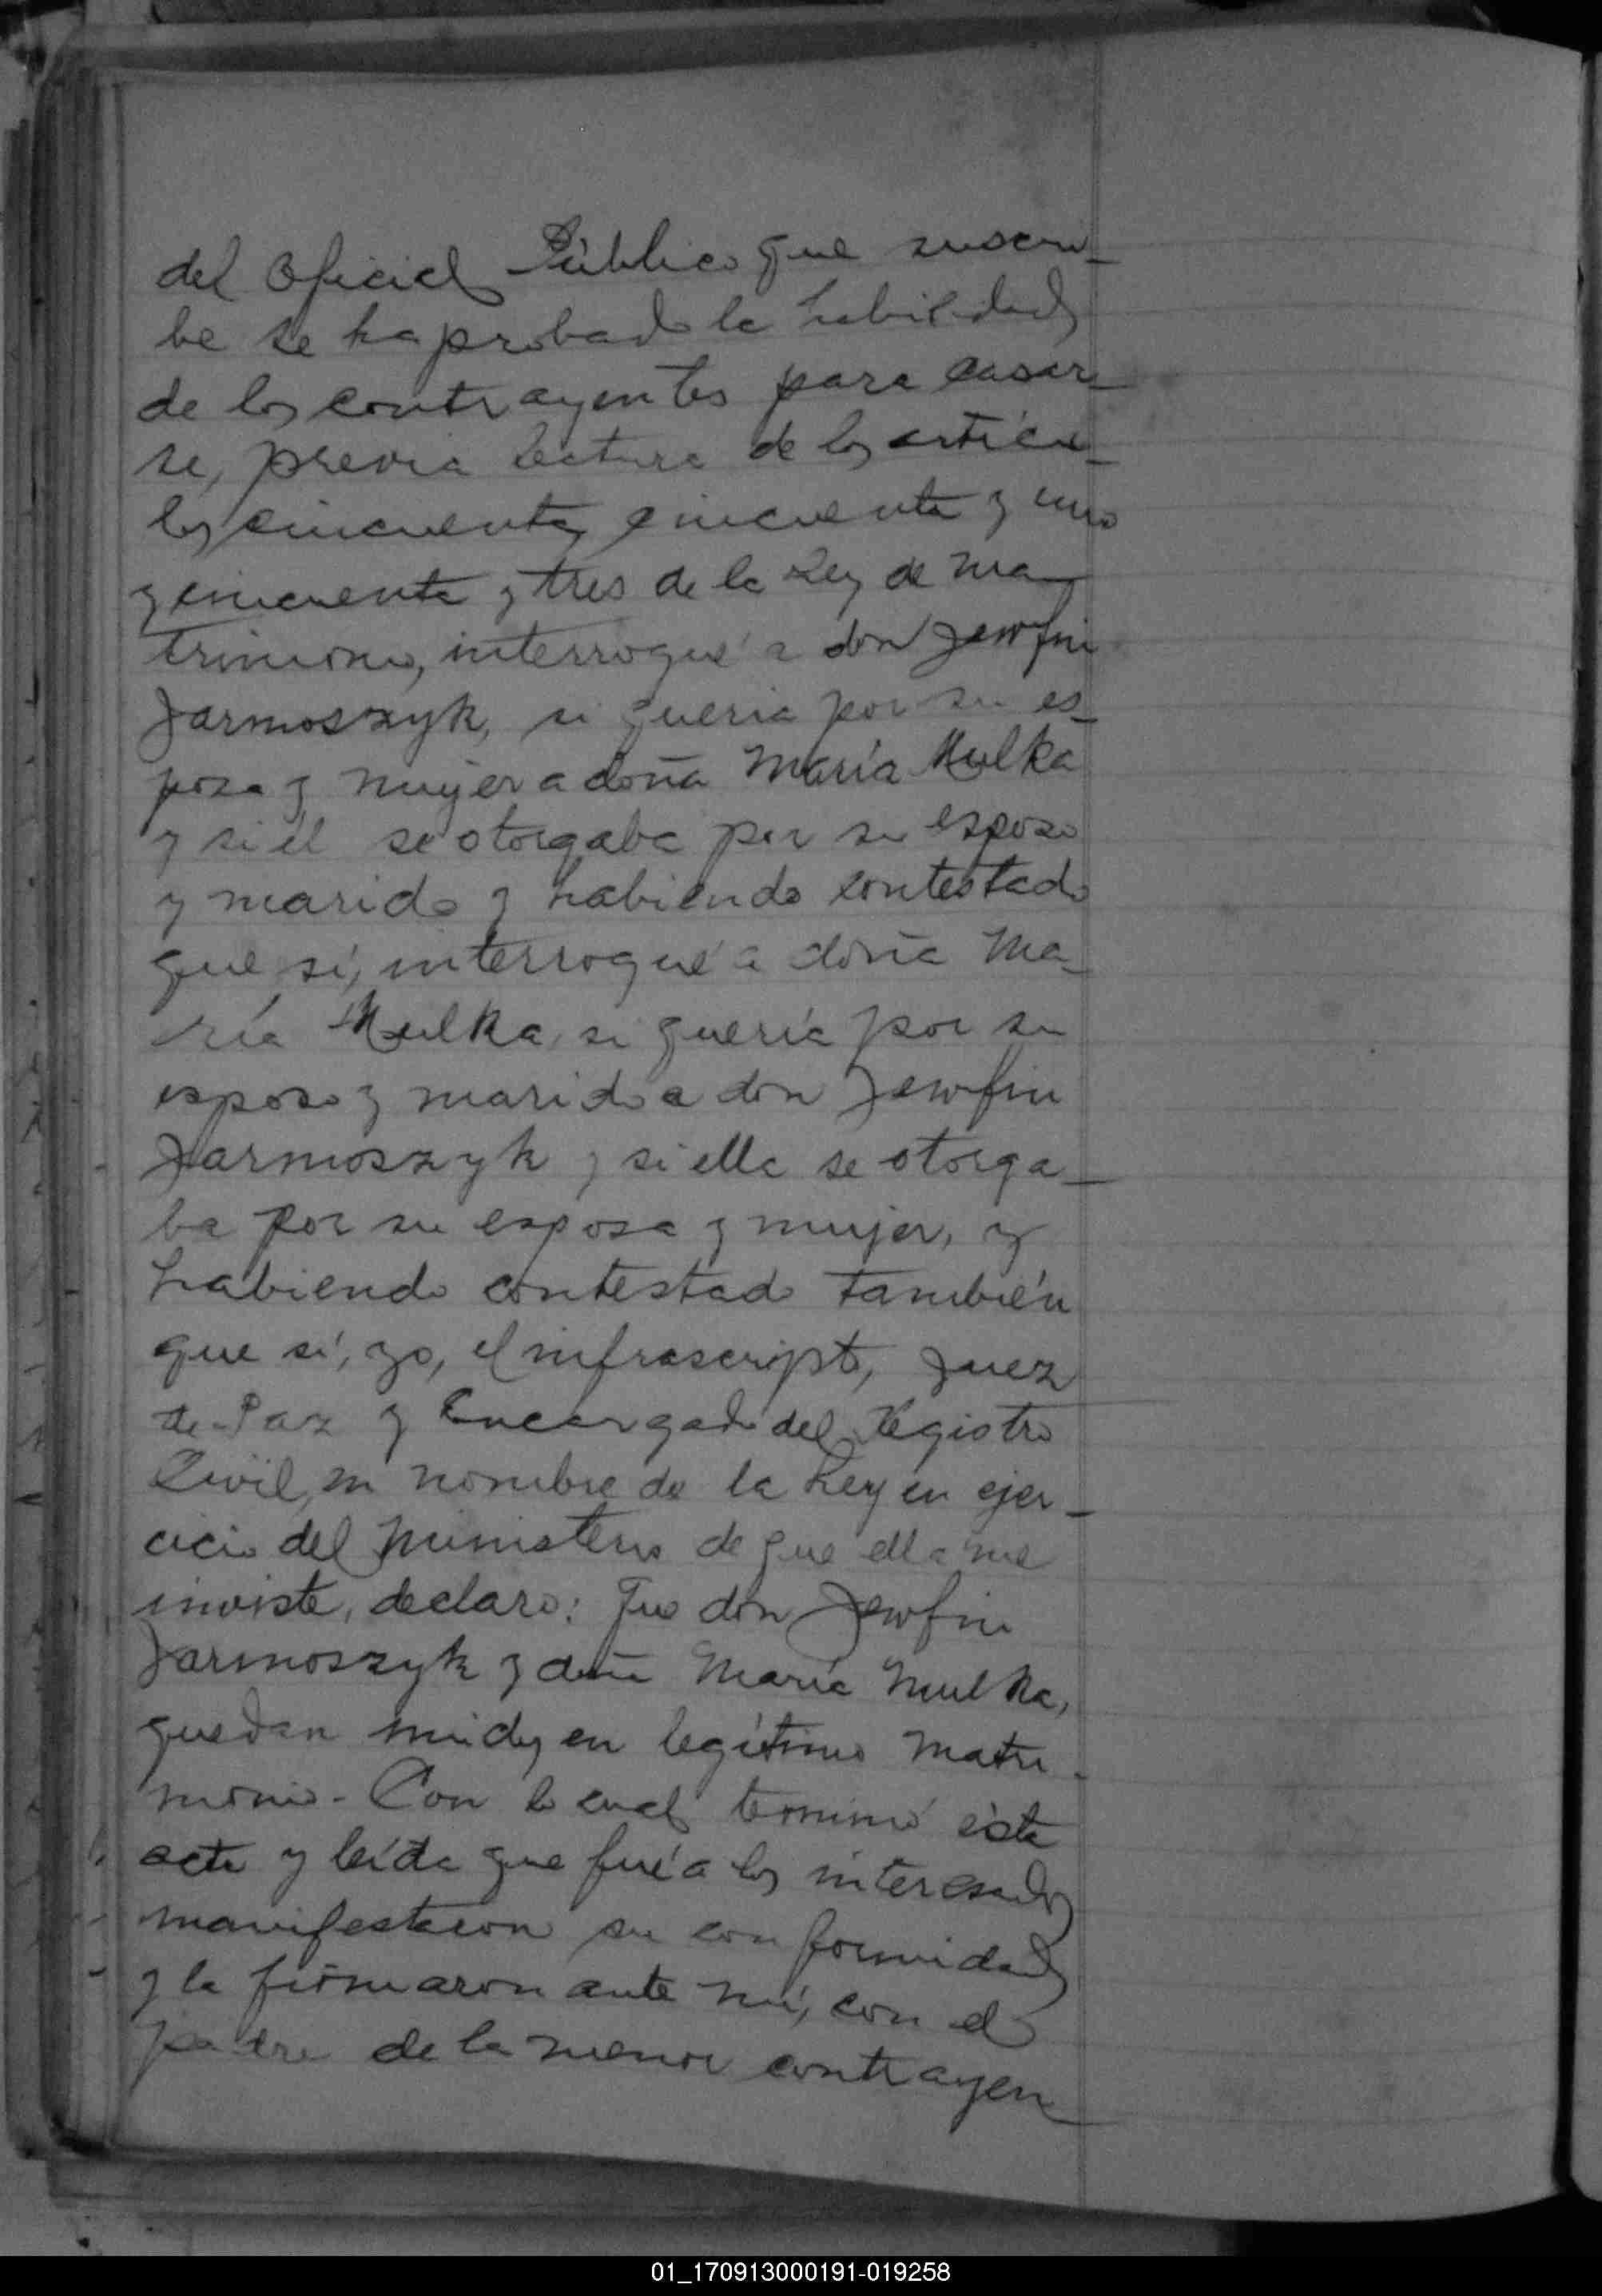 del Oficial Público que suscri-
be se ha probado la habilidad
de los contrayentes para casar-
se, previa lectura de los artícu-
los cincuenta, cincuenta y uno
y cincuenta y tres de la Ley de Ma-
trimonio, interrogué a don Jewfin
Jarmoszyk, si quería por su es-
posa y mujer a doña María Mulka
y si él se otorgaba por su esposo
y marido y habiendo contestado
que sí, interrogué a doña Ma-
ría Mulka, si quería por su
esposo y marido a don Jewfin
Jarmoszyk y si ella se otorga-
ba por su esposa y mujer, y
habiendo contestado también
que sí, yo, el infrascripto, Juez
de Paz y Encargado del Registro
Civil, en nombre de la Ley en ejer-
cicio del Ministerio de que ella me
inviste, declaro: Que don Jewfin
Jarmoszyk y doña María Mulka,
quedan unidos en legítimo Matri-
monio.- Con lo cual terminó ésta
acta y leída que fué a los interesados
manifestaron su conformidad
y la firmaron ante mí, con el
padre de la menor contrayen-
01_170913000191-019258